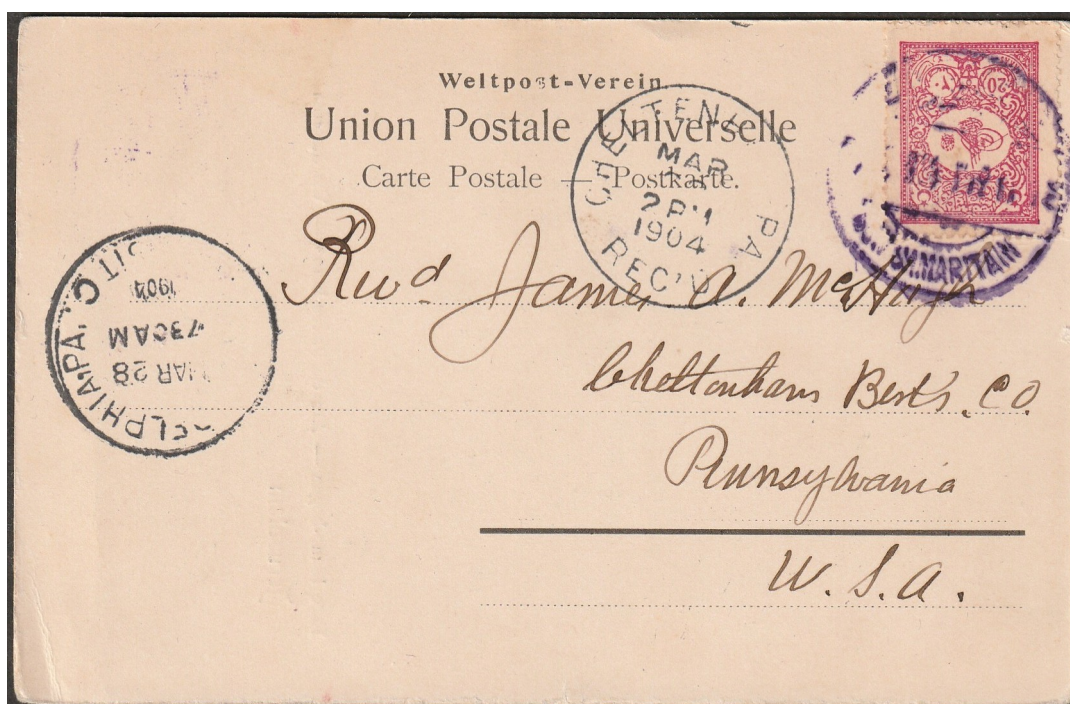 Weltpost-Verein
Union Postale Universelle
Carte Postale — Postkarte.
CHELTENH PA
MAR
2 PM
1904
REC'V
20
SAMARITAIN
ELPHIA, PA.
1904
730 AM
MAR 28
Revd James A. McHugh
Cheltenham Berks. Co.
Pennsylvania
U. S. A.